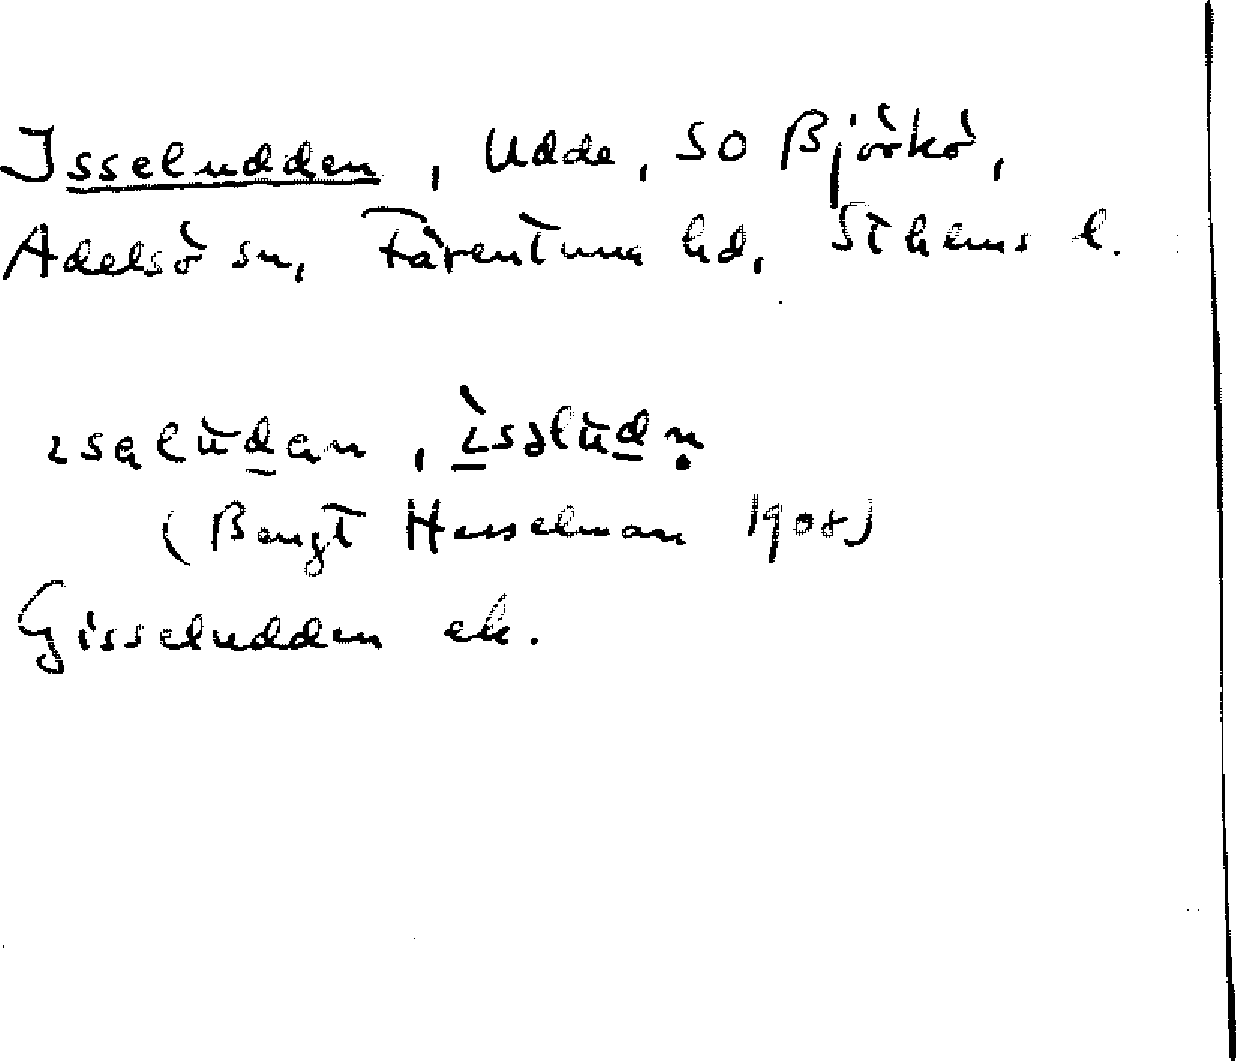 Isseludden, Udde, SO Björkö,
Adelsö sn, Färentuna hd, Sthlms l.
ɩsəlùdan, ɩ̀səlùdn̥
(Bengt Hesselman 1908)
Gisseludden ek.